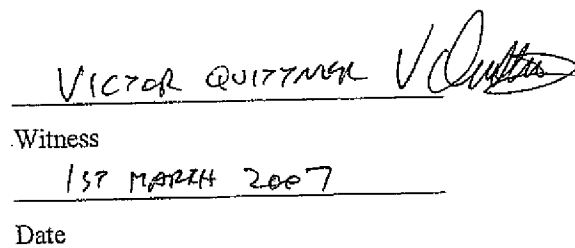 VICTOR QUITTNER V Quittner
Witness
1ST MARCH 2007
Date